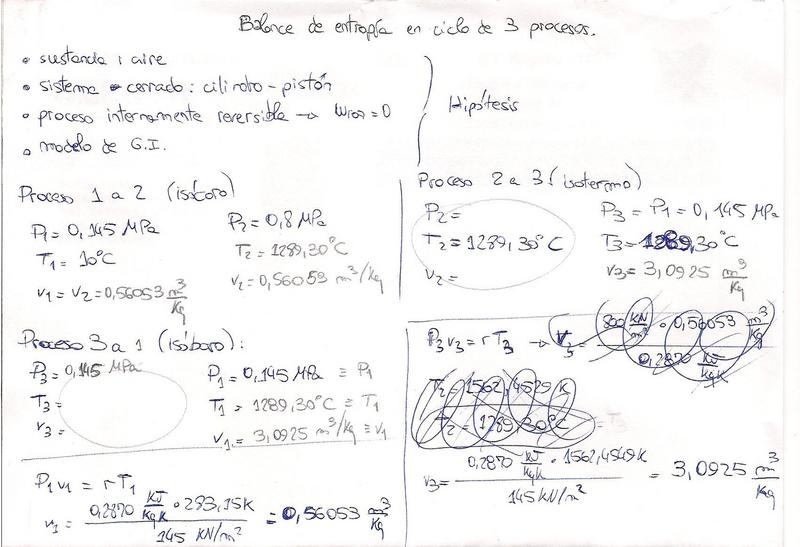 Balance de entropía en ciclo de 3 procesos.
• sustancia: aire
• sistema cerrado: cilindro-pistón
• proceso internamente reversible → Wroz=0
• modelo de G.I.
Hipótesis
Proceso 1 a 2 (isócoro)
P1=0,145 MPa
T1= 10°C
v1= v2=0,56053 m³/Kg
P2=0,8 MPa
T2=1289,30°C
v2=0,56053 m³/Kg
Proceso 2 a 3 (isotermo)
P2=
T2=1289,30°C
v2=
P3 = P1=0,145 MPa
T3=1289,30°C
v3= 3,0925 m³/Kg
Proceso 3 a 1 (isóbaro):
P3=0,145 MPa
T3=
v3=
P1=0,145 MPa ≡ P1
T1=1289,30°C ≡ T1
v1= 3,0925 m³/Kg ≡ v1
P1v1 = rT1
v1= 0,2870 KJ/KgK · 283,15K / 145 KN/m² = 0,56053 m³/Kg
P3v3=rT3 → v3= 800 KN/m² · 0,56053 m³/Kg / 0,2870 KJ/KgK
T2=1562,4529 K
T2=1289,30°C = T3
v3= 0,2870 KJ/KgK · 1562,4549K / 145 KN/m² = 3,0925 m³/Kg